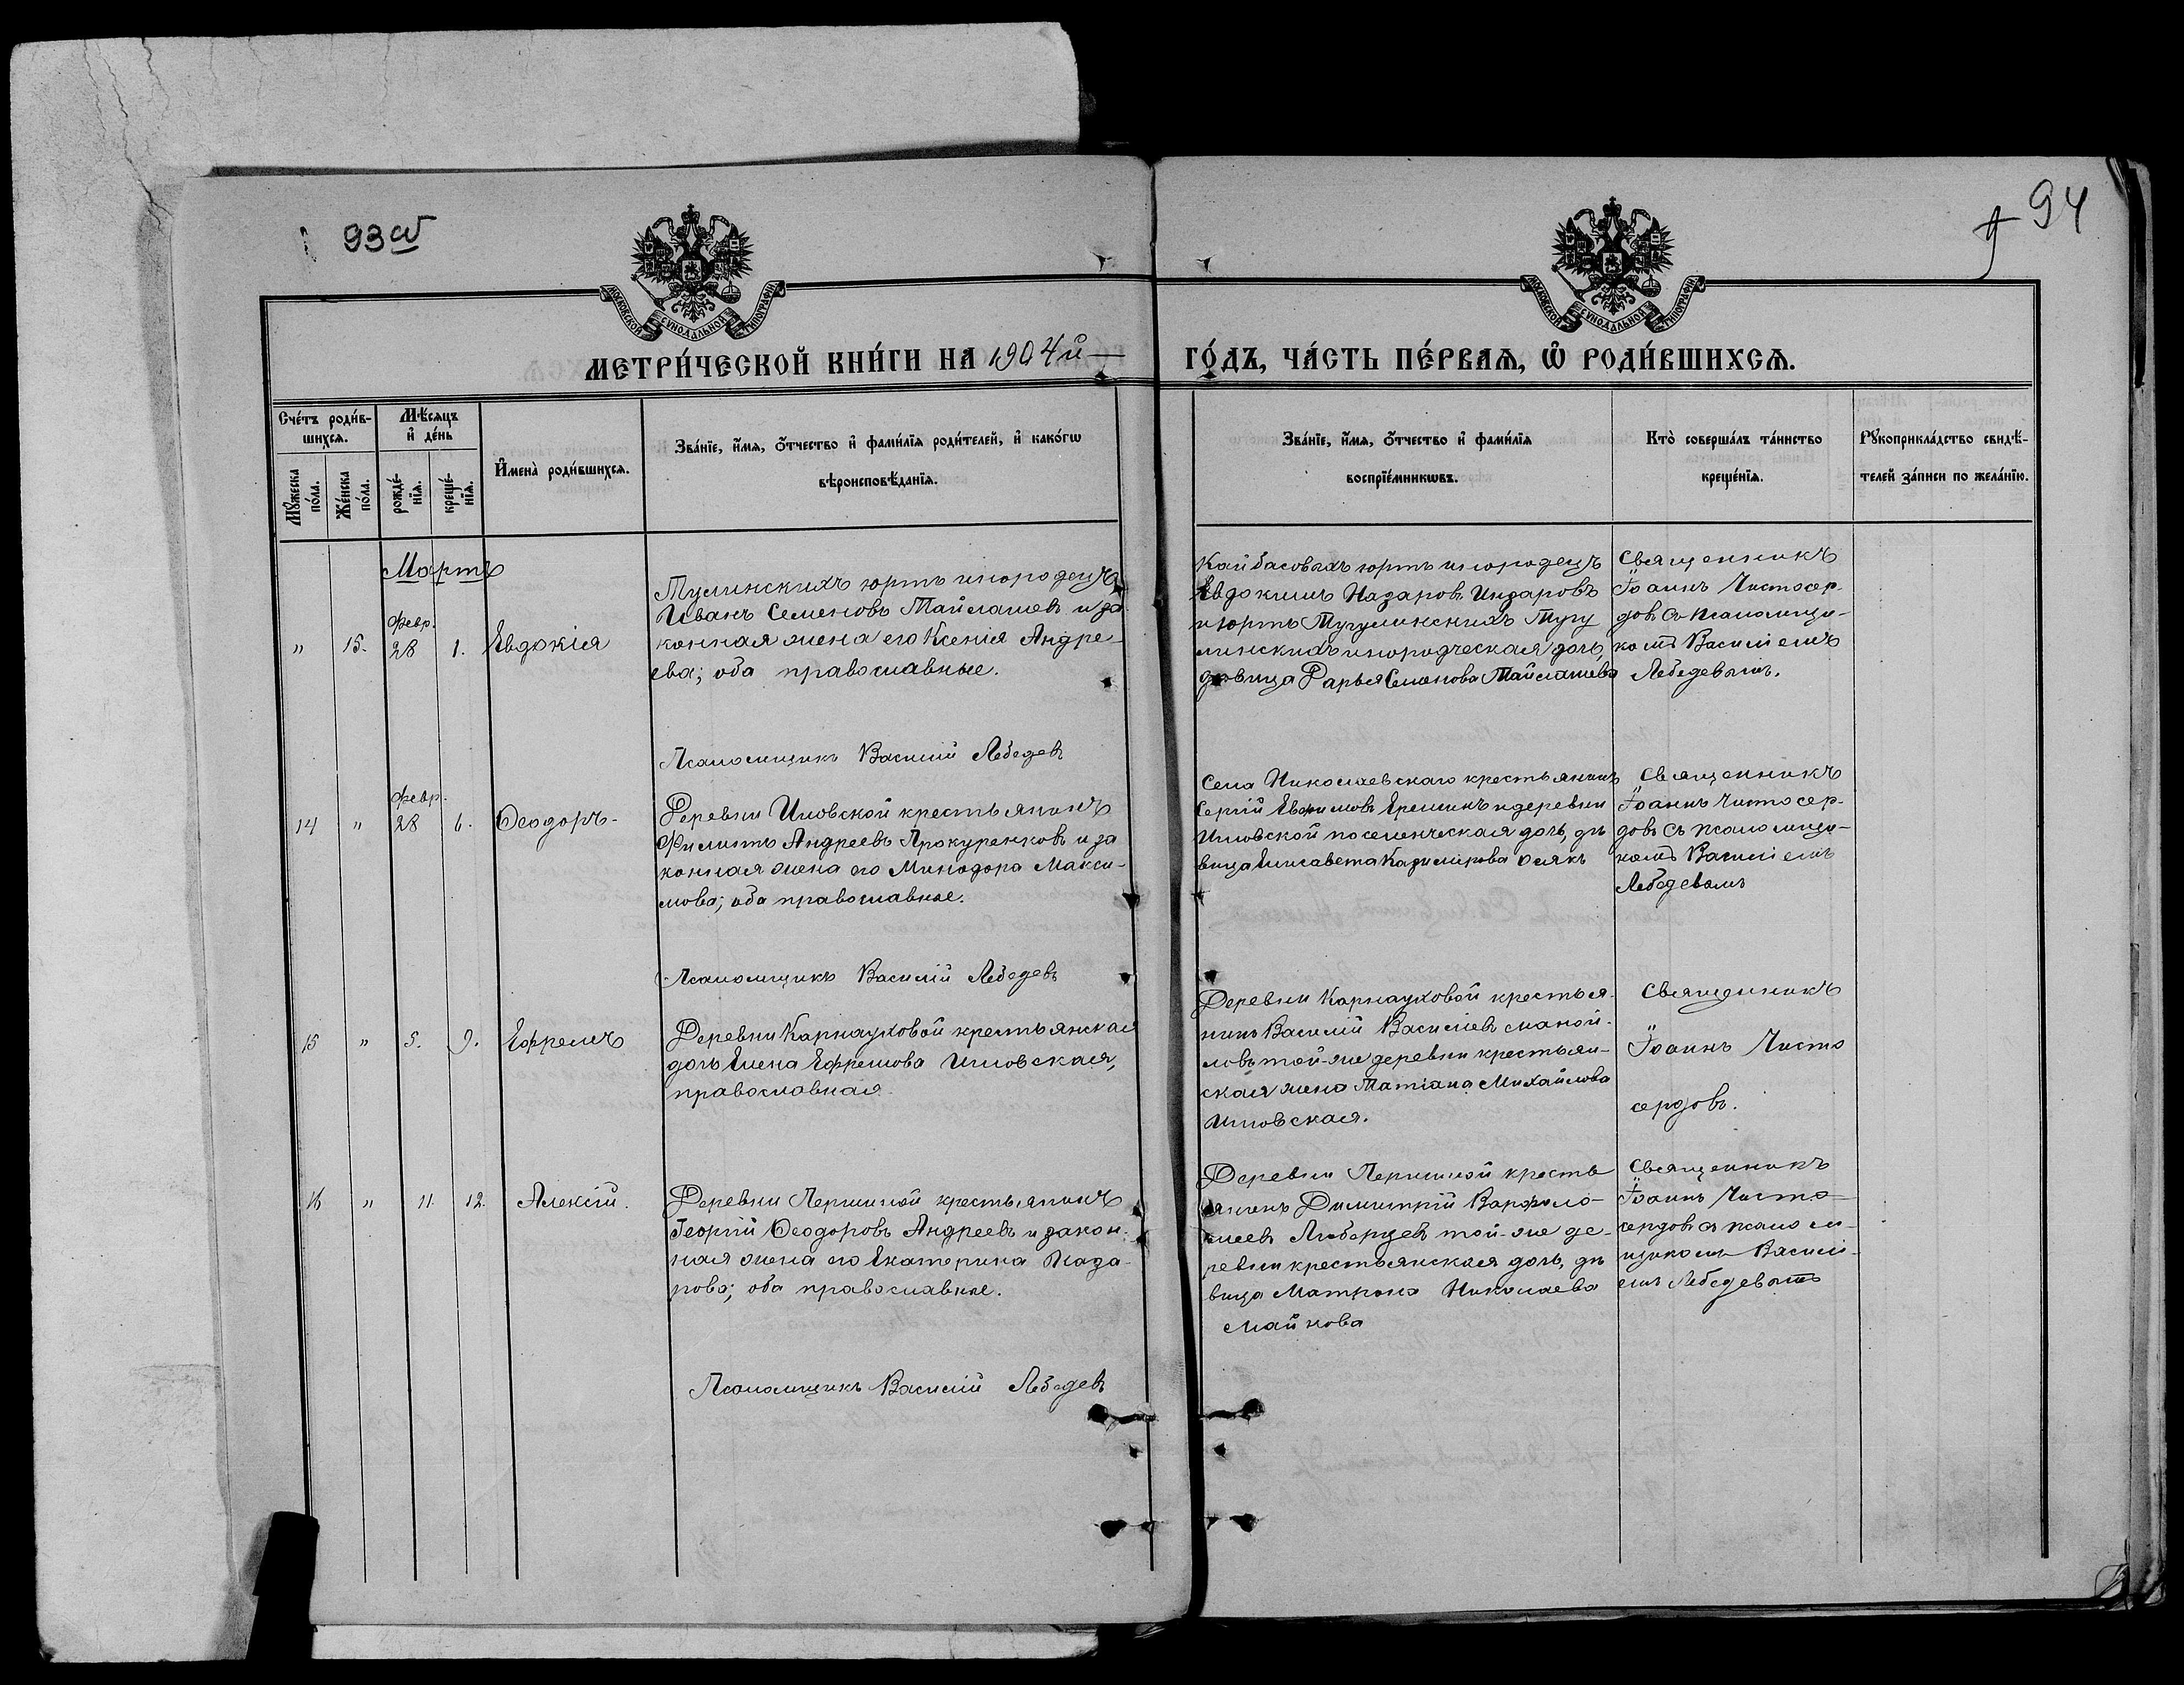 93 об
94
МОСКОВСКОЙ СУНОДАЛЬНОЙ ТИПОГРАФІИ
МОСКОВСКОЙ СУНОДАЛЬНОЙ ТИПОГРАФІИ
МЕТРИ́ЧЕСКОЙ КНИ́ГИ НА 1904 й— ГО́ДЪ, ЧА́СТЬ ПЕ́РВАѦ, Ѡ҆ РОДИ́ВШИХСѦ.
Сче́тъ роди́в-
шихсѧ.
Мѣ́сѧцъ
и҆ де́нь
Мꙋ́жеска
по́ла.
Же́нска
по́ла.
рожде́-
нїѧ.
креще́-
нїѧ.
И҆мена̀ роди́вшихсѧ.
Зва́нїе, и҆́мѧ, ѻ҆́тчество и҆ фами́лїѧ роди́телей, и҆ како́гѡ
вѣроисповѣ́данїѧ.
Зва́нїе, и҆́мѧ, ѻ҆́тчество и҆ фами́лїѧ
воспрїе́мникѡвъ.
Кто̀ соверша́лъ та́инство
креще́нїѧ.
Рꙋкоприкла́дство свидѣ́-
телей за́писи по жела́нїю.
Мартъ
„ 15. Февр. 28 1. Евдокія
Иванъ Семеновъ Тайлашев и за
конная жена его Ксенія Андре-
ева; оба православные.
Кайбасовыхъ юртъ инородецъ
Евдокимъ Назаровъ Индаровъ
и юртъ Тугулинскихъ Тугу
линскихъ инородческая дочь,
дѣвица Дарья Семенова Тайлашева
Священникъ
Іоаннъ Чистосер-
довъ съ псаломщи-
комъ Василіемъ
Лебедевымъ.
Псаломщикъ Василій Лебедевъ
14 „ Февр. 28 6. Ѳеодоръ-
Деревни Иловской крестьянинъ
Филиппъ Андреевъ Прокуренковъ и за
конная жена его Минодора Макси-
мова; оба православные.
Села Николаевскаго крестьянинъ
Сергій Евфимовъ Еремикъ и деревни
Иловской поселенческая дочь, дѣ
вица Елисавета Казимірова
Священникъ
Іоаннъ Чистосер-
довъ съ псаломщи-
комъ Василіемъ
Лебедевымъ
Псаломщикъ Василій Лебедевъ
15 „ 5. 9. Ефремъ
Деревни Карнауховой крестьянская
дочь Елена Ефремова Иловская,
православная.
Деревни Карнауховой крестья-
нинъ Василій Василіевъ Маной-
ловъ той-же деревни крестьян-
ская жена Татіана Михайлова
Иловская.
Священникъ
Іоаннъ Чисто
сердовъ.
16 „ 11. 12. Алексій.
Деревни Першиной крестьянинъ
Георгій Ѳеодоровъ Андреевъ и закон-
ная жена его Екатерина Наза-
рова; оба православные.
Деревни Першиной кресть
янинъ Димитрій Варфоло-
меевъ Люберцевъ той-же де-
ревни крестьянская дочь, дѣ
вица Матрона Николаева
Майкова
Священникъ
Іоаннъ Чисто-
сердовъ съ псалом-
щикомъ Василі-
емъ Лебедевымъ
Псаломщикъ Василій Лебедевъ